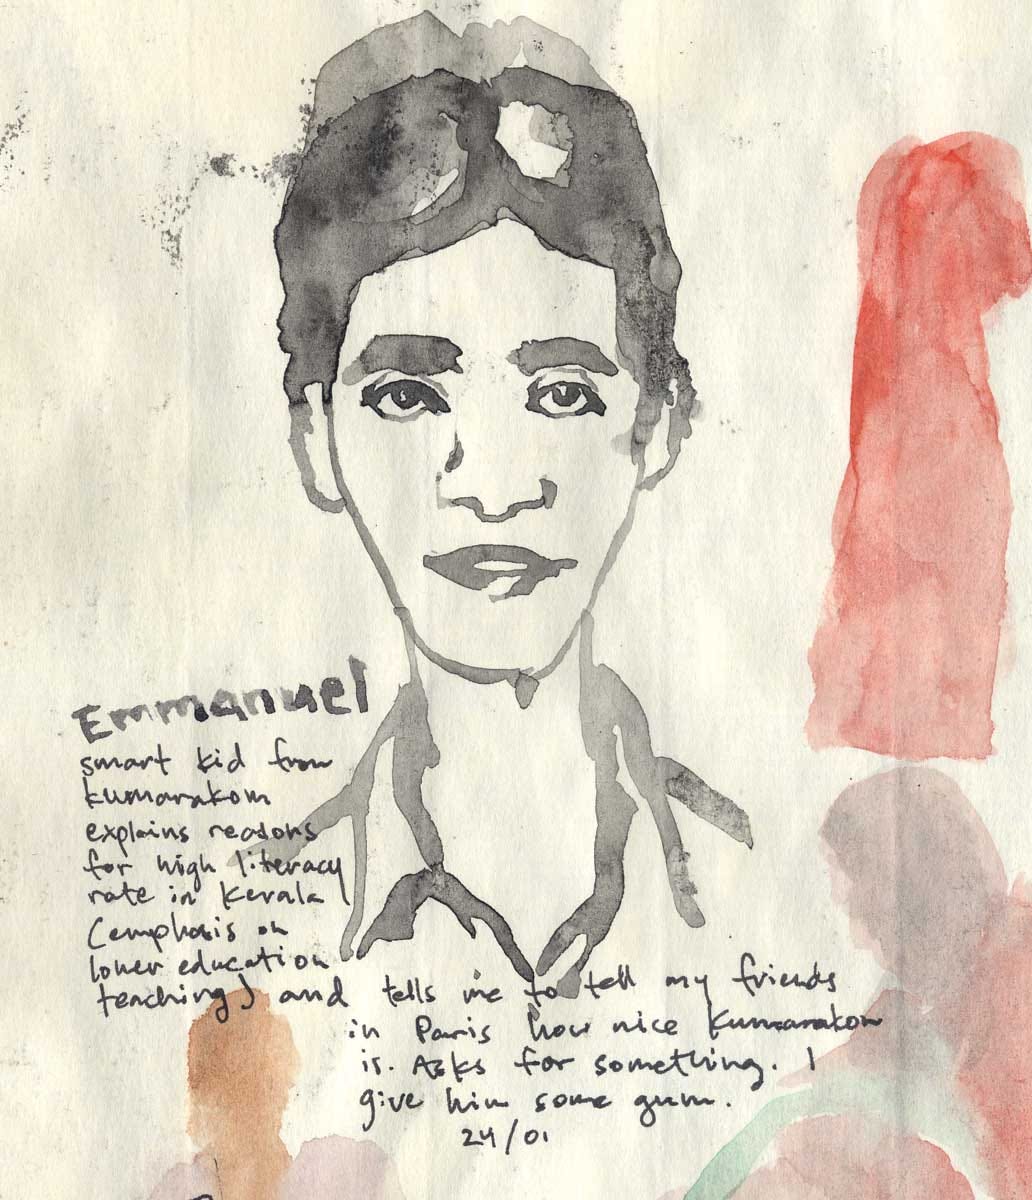 Emmanuel
smart kid from
kumarakom
explains reasons
for high literacy
rate in Kerala
(emphasis on
lower education
teaching) and tells me to tell my friends
in Paris how nice Kumarakom
is. Asks for something. I
give him some gum.
24/01